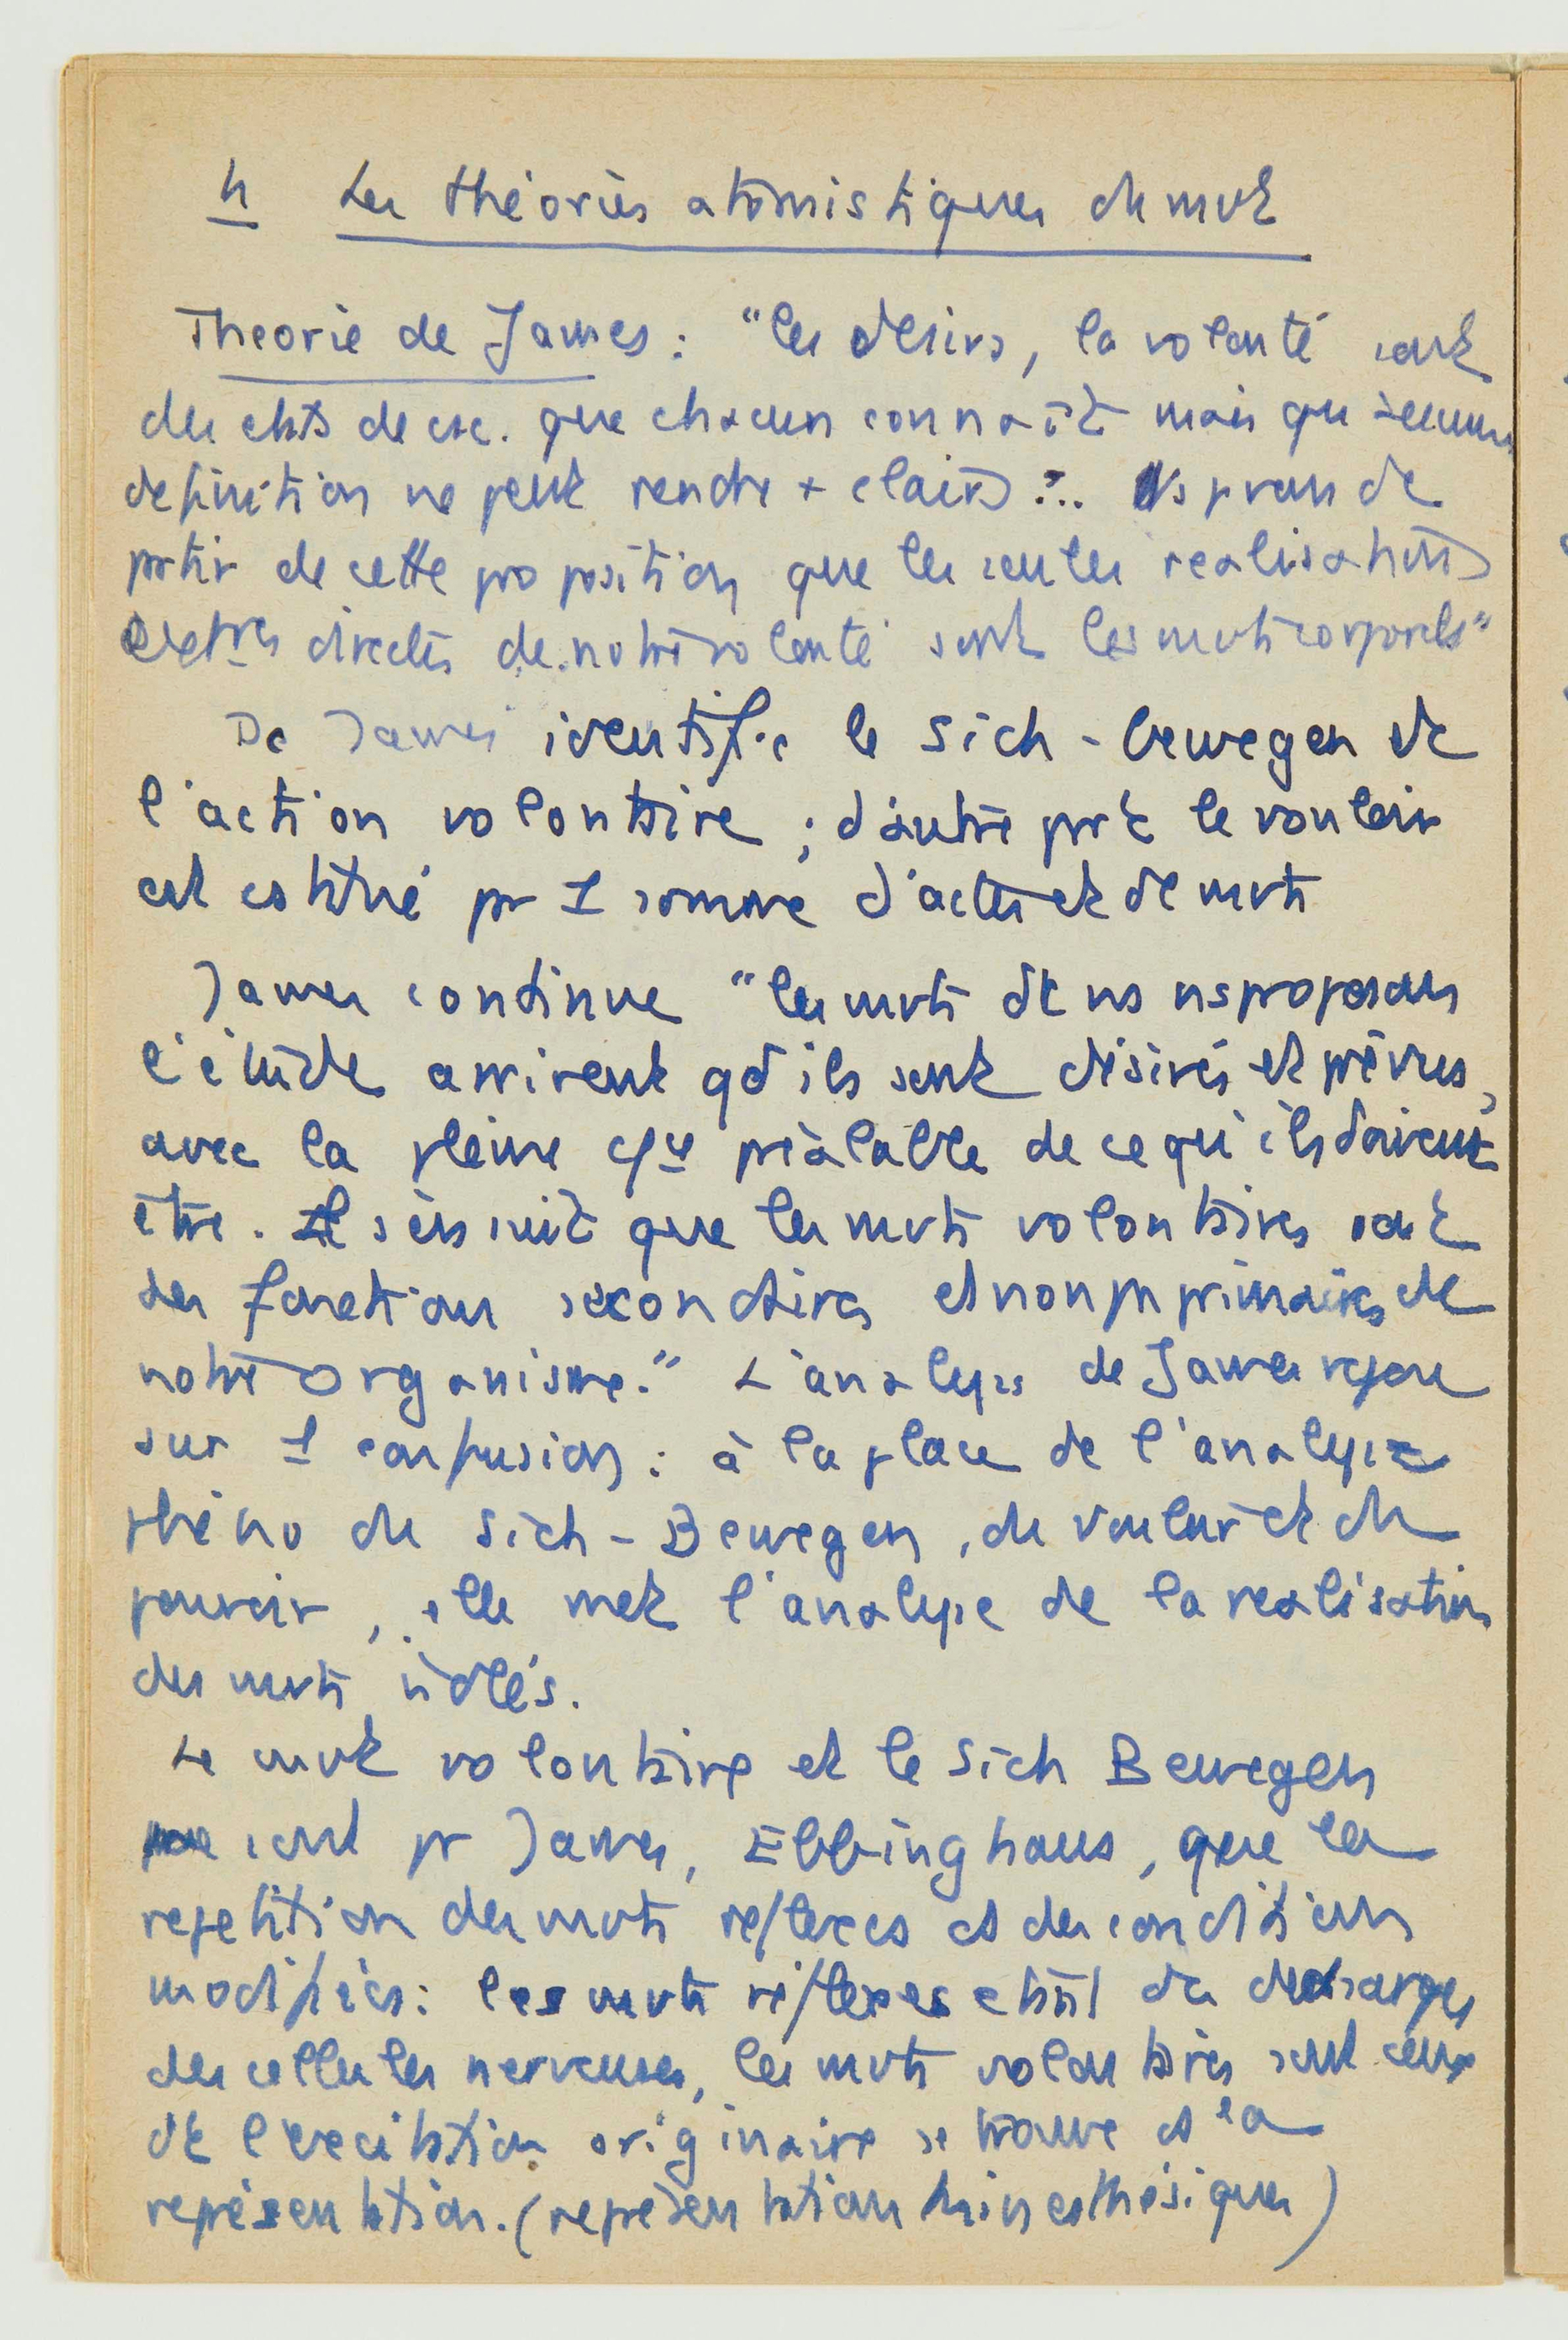 4 Les théories atomistiques du mvt
Theorie de James : "les désirs, la volonté sont
des etats de csc. que chacun connaît mais qu'aucune
definition ne peut rendre + clairs ... Ns prons de
prtir de cette proposition que les seules realisations
extres directes de notre volonté sont les mvts corporels"
Dc James identifie le sich-bewegen et
l'action volontaire ; d'autre prt le vouloir
est cstitué pr 1 somme d'actes et de mvts
James continue "les mvts dt ns ns proposons
l'étude arrivent qd ils sont désirés et prévus,
avec la pleine csce préalable de ce qu'ils doivent
être. Il s'en suit que les mvts volontaires sont
des fonctions secondaires et non pas primaires de
notre organisme." L'analyse de James repose
sur 1 confusion : à la place de l'analyse
phéno du sich-Bewegen, du vouloir et du
pouvoir, elle met l'analyse de la realisation
des mvts isolés.
Le mvt volontaire et le sich Bewegen
sont pr James, Ebbinghaus, que la
repetition des mvts reflexes ds des conditions
modifiées : les mvts réflexes étant des decharges
des cellules nerveuses, les mvts volontaires sont ceux
dt l'excitation originaire se trouve ds la
représentation. (représentations kinesthésiques)